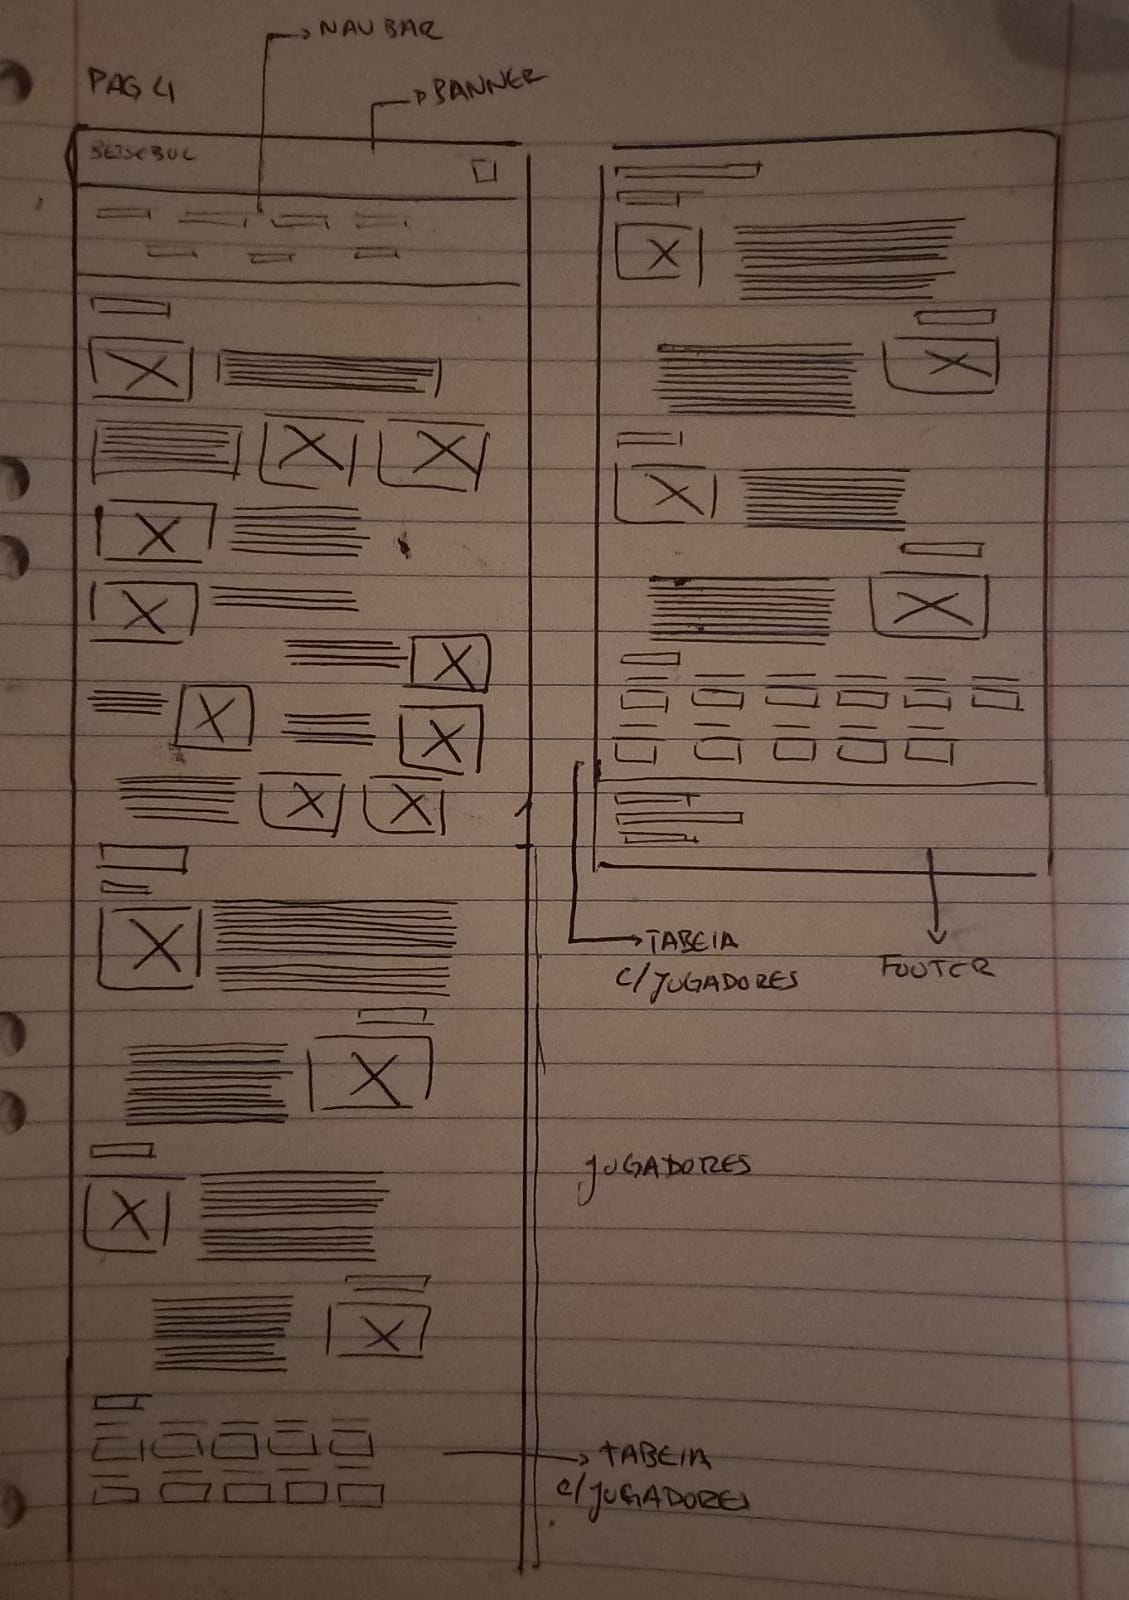 NAVBAR
PAG 4
BANNER
TABEIA
C/JUGADORES
FOOTER
JUGADORES
TABEIA
C/JUGADORES